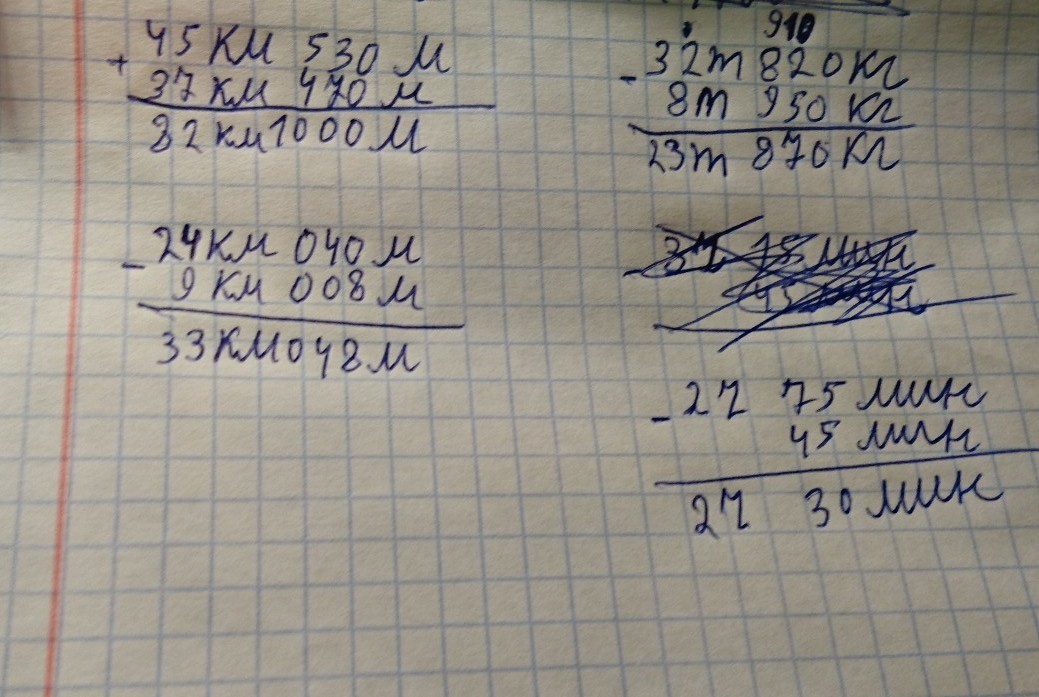 + 45 км 530 м
37 км 470 м
82 км 1000 м
- 24 км 040 м
9 км 008 м
33 км 048 м
910
- 32 т 820 кг
8 т 950 кг
23 т 870 кг
3ч 15 мин
45 мин
- 2ч 75 мин
45 мин
2ч 30 мин